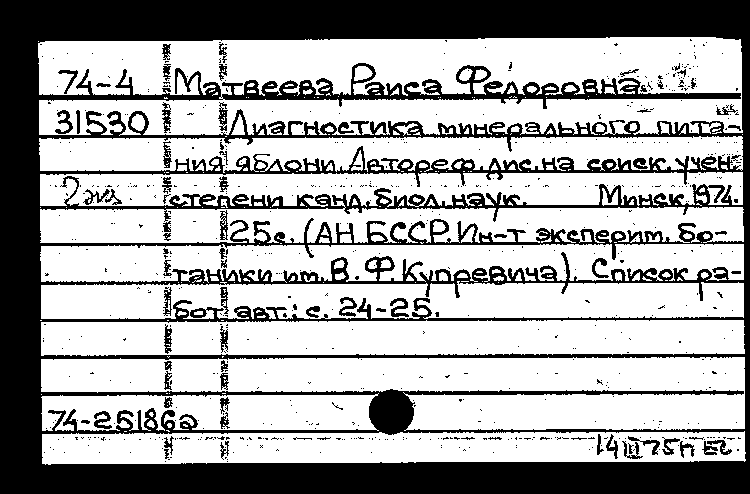 74-4 Матвеева, Раиса Федоровна
31530 Диагностика минерального пита-
ния яблони. Автореф. дис. на соиск. учен.
2 экз степени канд. биол. наук. Минск, 1974.
25с. (АН БССР. Ин-т эксперим. бо-
таники им. В. Ф. Купревича). Список ра-
бот авт.: с. 24-25.
74-25186а
14 III 75п